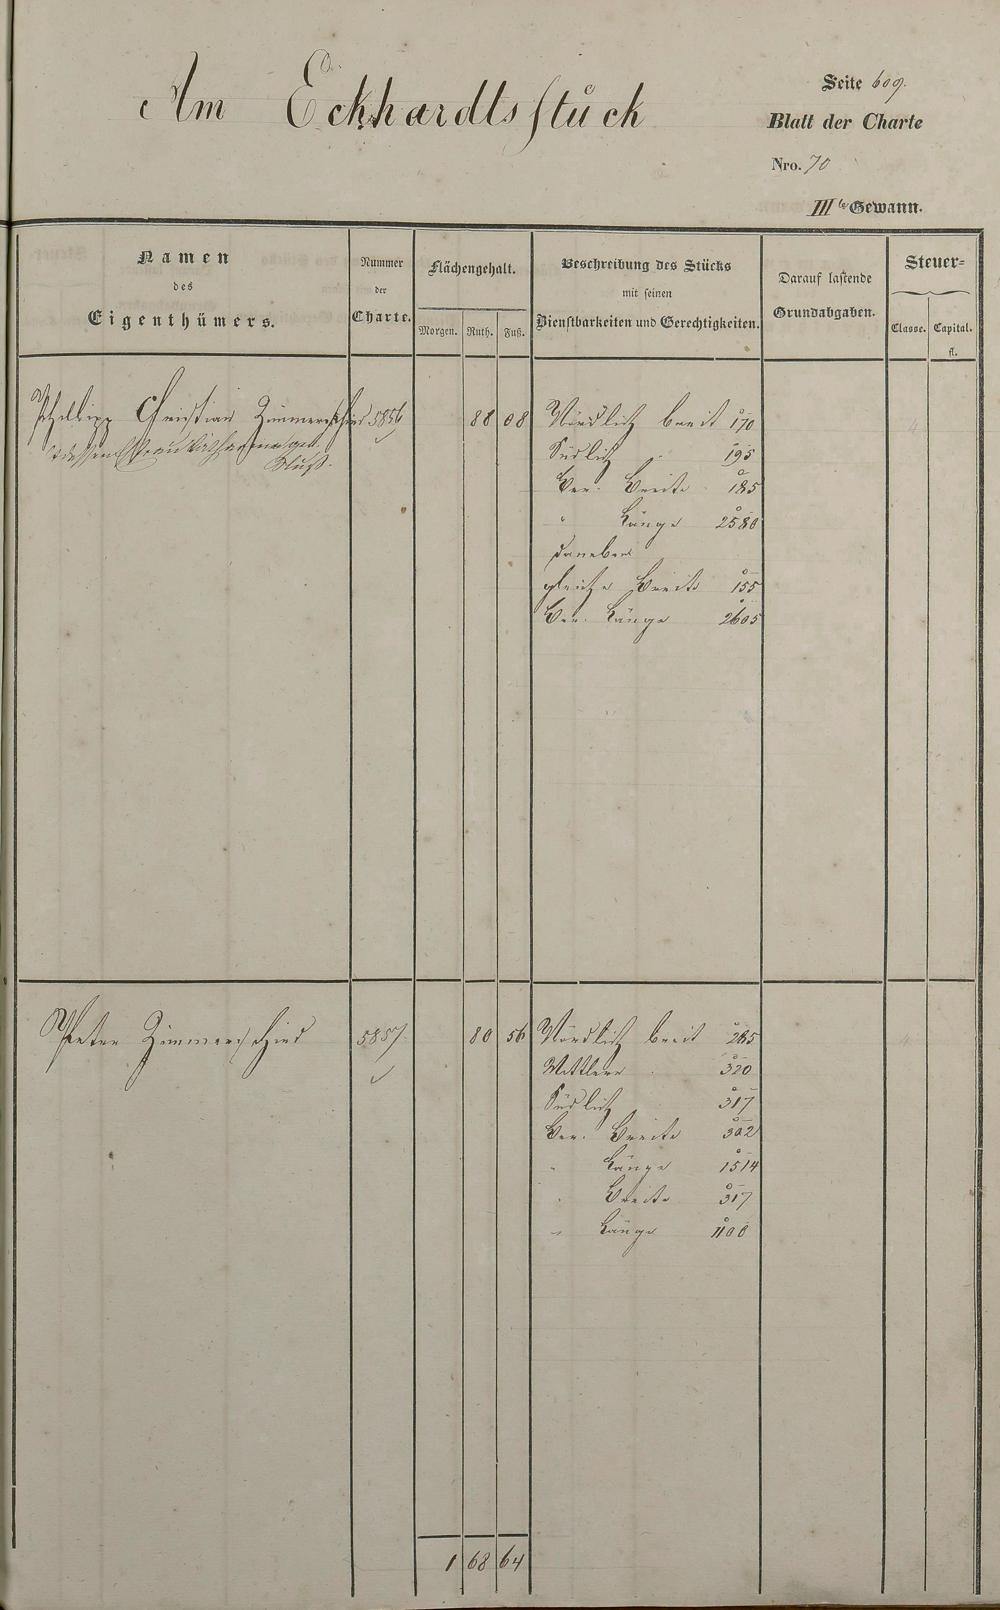 Am Eckhardtsstück
Seite 609.
Blatt der Charte
Nro. 70
III te Gewann.
Namen
des
Eigenthümers.
Nummer
der
Charte.
Flächengehalt.
Morgen. Ruth. Fuß.
Beschreibung des Stücks
mit seinen
Dienstbarkeiten und Gerechtigkeiten.
Darauf lastende
Grundabgaben.
Steuer=
Classe. Capital.
fl.
Philipp Christian Zimmerschied 5856 88 08 Nördlich breit 170
& dessen Ehefrau Katharina geb.
Südlich " 195
Ver. Breite 185
" Länge 2580
daneben
gleiche Breite 155
Ver. Länge 2605
Peter Zimmerschied 5857. 80 56 Nördlich breit 285
Mittlere 320
Südlich 317
Ver. Breite 302
" Länge 1514
" Breite 317
" Länge 1100
1 68 64